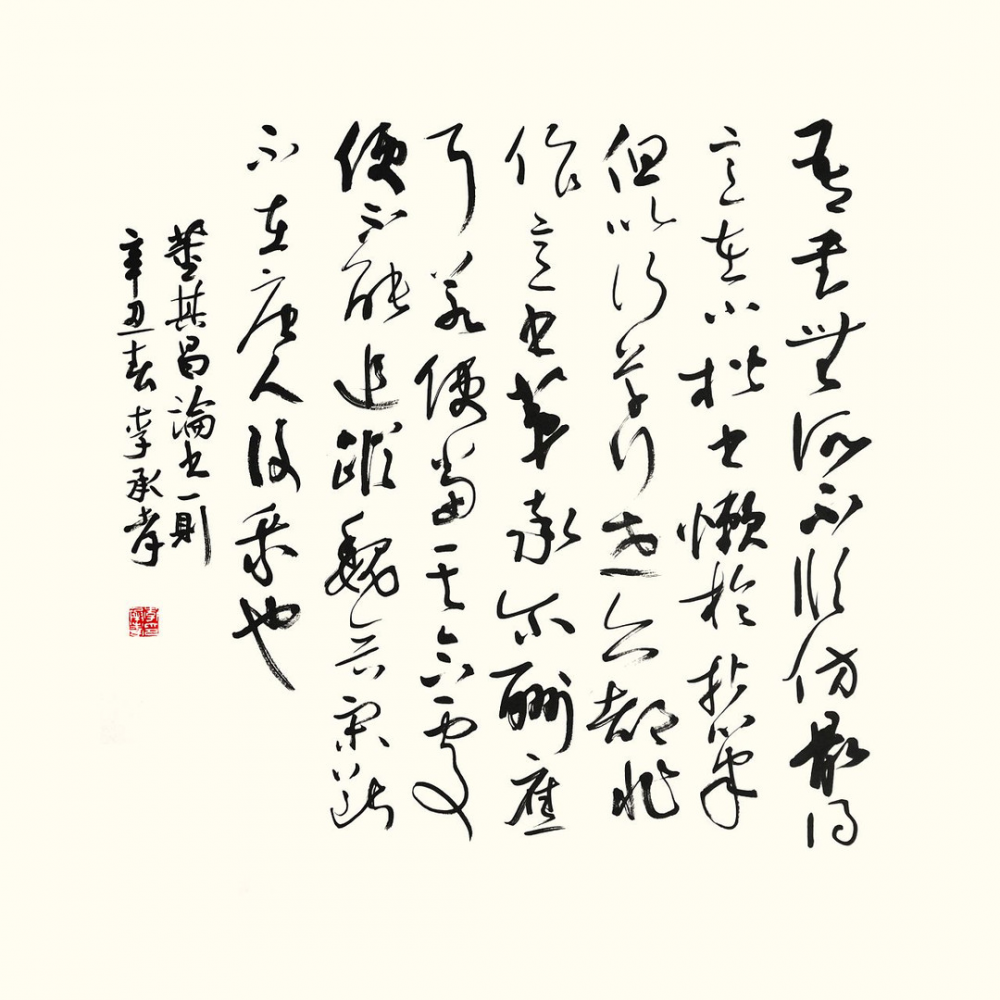 吾書無所不臨仿最得
意在小楷書懶於拈筆
但以行草行世亦都非
作意書第率尔酬應
耳若使當其合處
便不能追蹤魏晉宋斷
不在唐人後乘也
董其昌論書一則
辛丑春李承孝